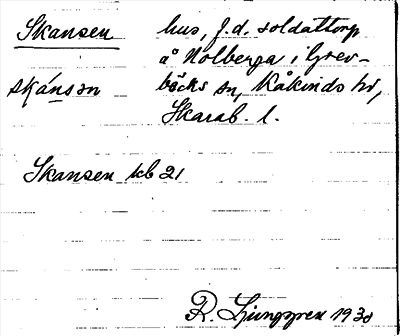 Skansen hus, f.d. soldattorp
å Holberga i Grev-
skánsən bäcks sn, Kåkinds hd,
Skarab. l.
Skansen kb 21
R. Ljunggren 1930